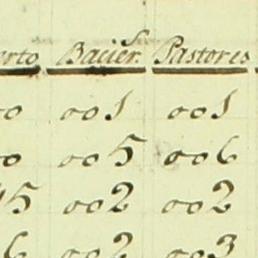 erto Bacier.^s Pastores
o 001 001
o 005 006
15 002 002
6 002 003